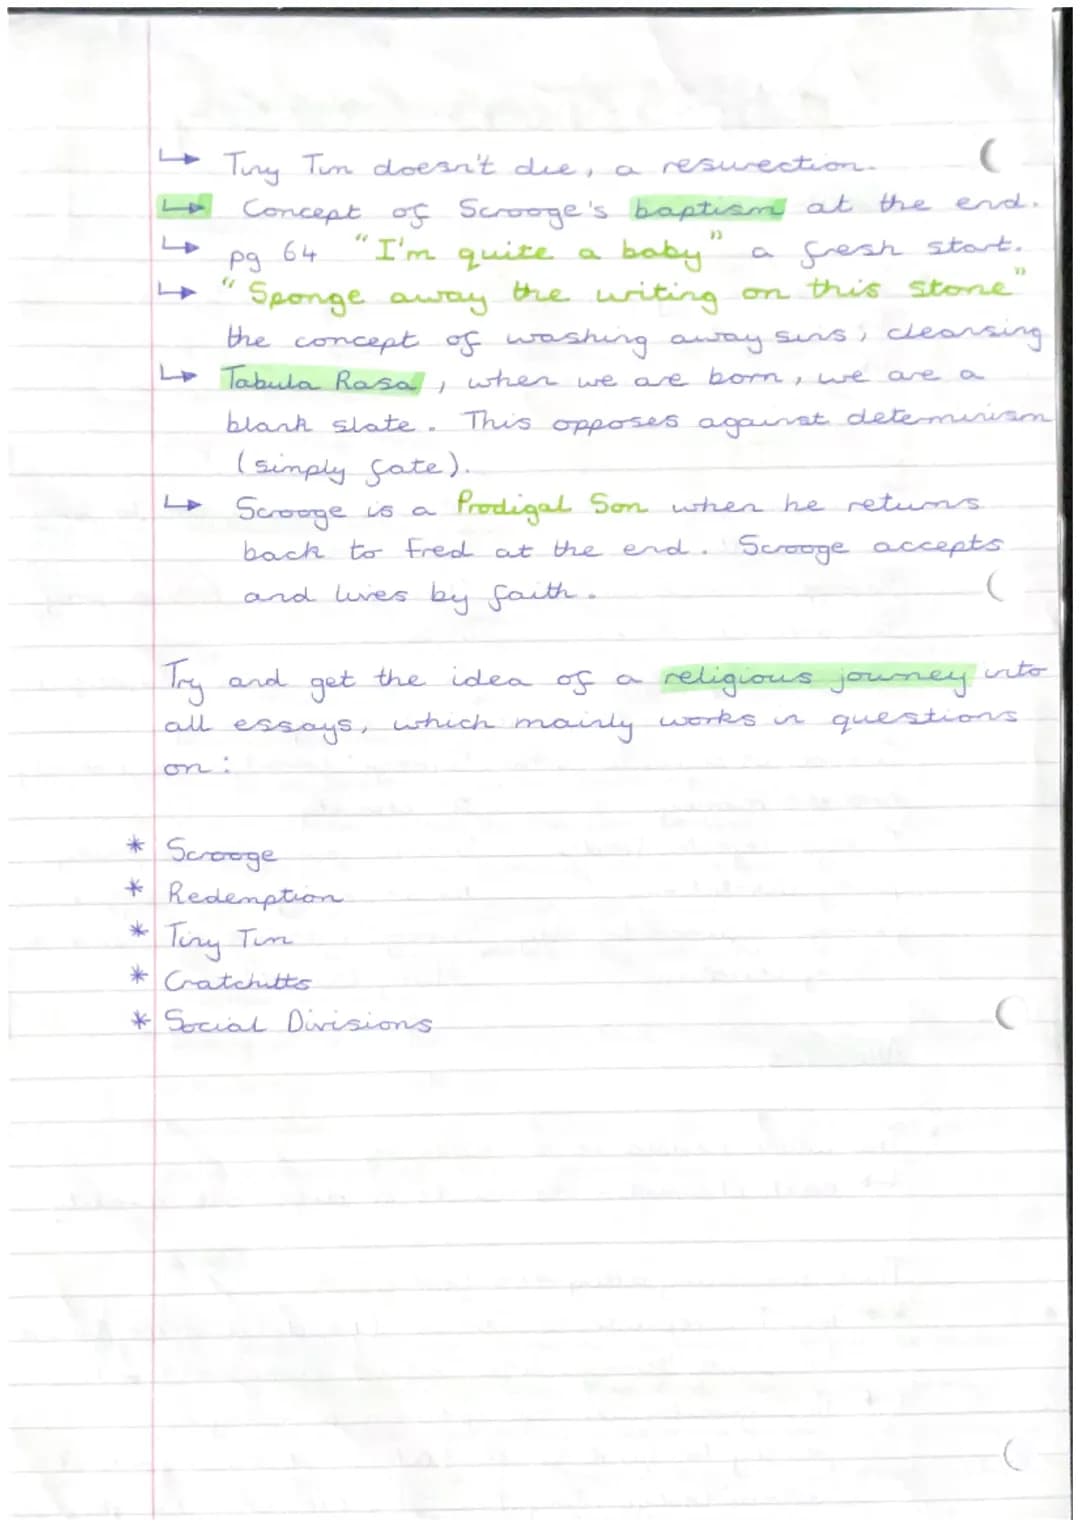 ↳ Tiny Tim doesn't die, a resurection.
↳ Concept of Scrooge's baptism at the end.
↳ pg 64 "I'm quite a baby" a fresh start.
↳ "Sponge away the writing on this stone"
the concept of washing away sins, cleansing
↳ Tabula Rasa, when we are born, we are a
blank slate. This opposes against determinism
(simply fate).
↳ Scrooge is a Prodigal Son when he returns
back to Fred at the end. Scrooge accepts
and lives by faith.
Try and get the idea of a religious journey into
all essays, which mainly works in questions
on:
* Scrooge
* Redemption
* Tiny Tim
* Cratchitts
* Social Divisions